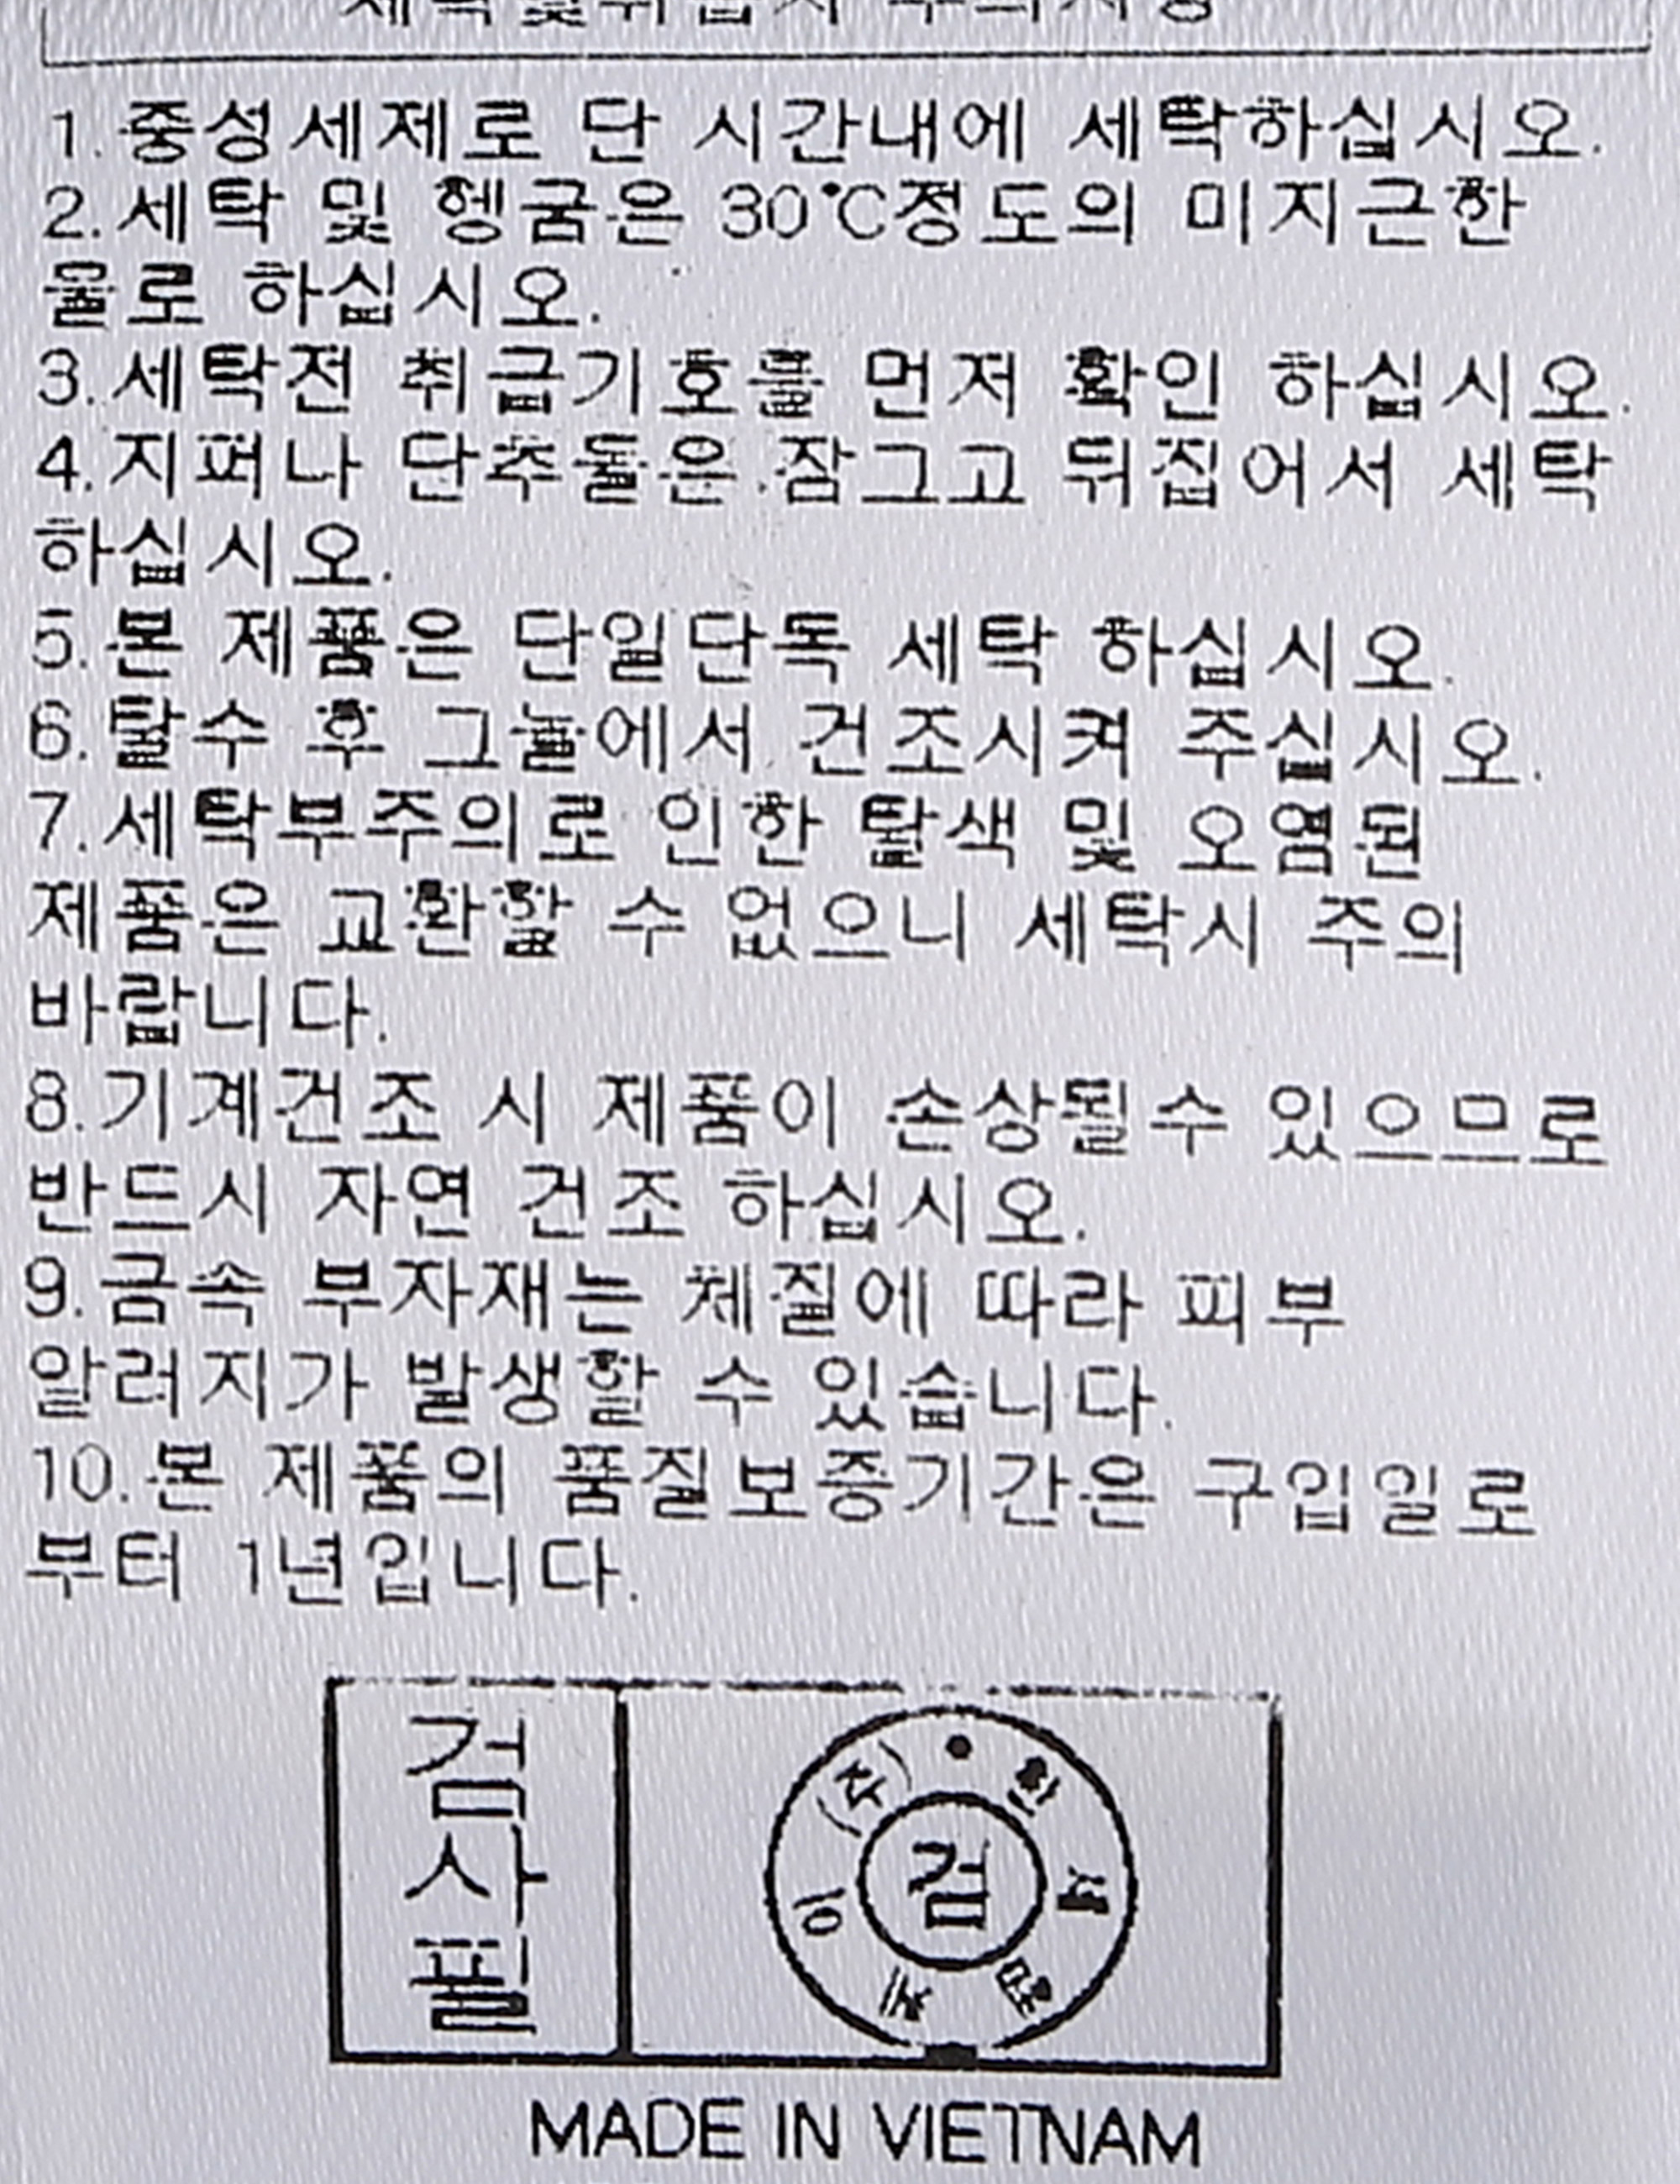 세탁및취급시 주의사항
1. 중성세제로 단 시간내에 세탁하십시오.
2. 세탁 및 헹굼은 30℃정도의 미지근한
물로 하십시오.
3. 세탁전 취급기호를 먼저 확인 하십시오.
4. 지퍼나 단추들은 잠그고 뒤집어서 세탁
하십시오.
5. 본 제품은 단일단독 세탁 하십시오.
6. 탈수 후 그늘에서 건조시켜 주십시오.
7. 세탁부주의로 인한 탈색 및 오염된
제품은 교환할 수 없으니 세탁시 주의
바랍니다.
8. 기계건조 시 제품이 손상될수 있으므로
반드시 자연 건조 하십시오.
9. 금속 부자재는 체질에 따라 피부
알러지가 발생할 수 있습니다.
10. 본 제품의 품질보증기간은 구입일로
부터 1년입니다.
검사필
검
(주)
MADE IN VIETNAM